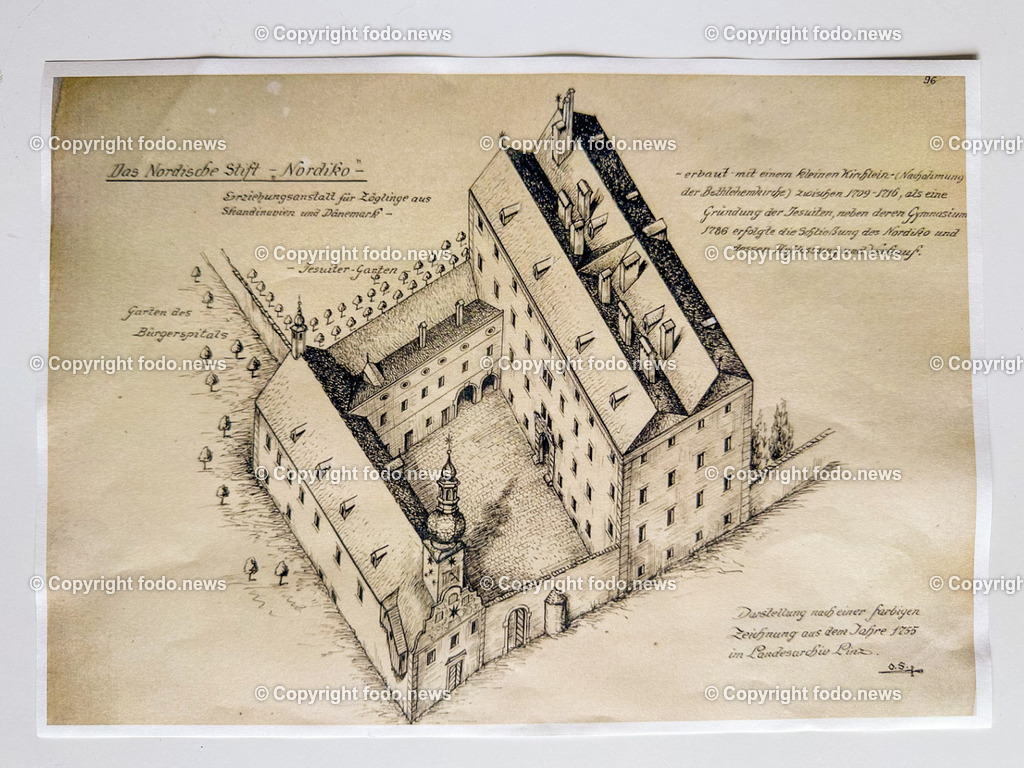 © Copyright fodo.news © Copyright fodo.news
96
© Copyright fodo.news © Copyright fodo.news © Cop
Das Nordische Stift - „Nordiko“
Erziehungsanstalt für Zöglinge aus
Skandinavien und Dänemark -
- erbaut mit einem kleinen Kirchlein - (Nachahmung
der Bethlehemkirche) zwischen 1709-1716, als eine
Gründung der Jesuiten, neben deren Gymnasium
1786 erfolgte die Schließung des Nordiko und
dessen
© Copyright fodo.news © Copyright fodo.news
- Jesuiter-Garten -
Garten des
Bürgerspitals
© Copyright fodo.news © Copyright fodo.news © Cop
© Copyright fodo.news © Copyright fodo.news
© Copyright fodo.news © Copyright fodo.news © Cop
Darstellung nach einer farbigen
Zeichnung aus dem Jahre 1755
im Landesarchiv Linz.
O.S.
© Copyright fodo.news © Copyright fodo.news